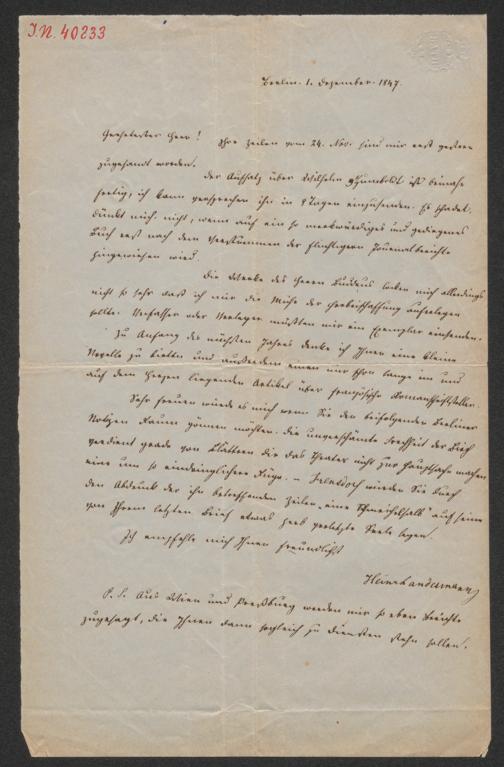 I.N. 40233
Berlin. 1. Dezember. 1847.
Geehrtester Herr! Ihre Zeilen vom 24. Nov. sind mir erst gestern
zugesandt worden.
Der Aufsatz über Wilhelm Humboldt ist beinahe
fertig, ich kann versprechen ihn in 8 Tagen einzusenden. Es schadet,
dünkt mich, nicht, wenn auf ein so merkwürdiges und gediegenes
Buch erst nach dem Verstummen der flüchtigern Journalberichte
hingewiesen wird.
Die Werke des Herrn locken mich allerdings
nicht so sehr daß ich mir die Mühe der Herbeischaffung auferlegen
sollte. Verfasser oder Verleger müßten mir ein Exemplar einsenden.
Zu Anfang des nächsten Jahres denke ich Ihnen eine kleine
Novelle zu bieten und außerdem einen mir schon lange im und
auf dem Herzen liegenden Artikel über französische Romanschriftsteller.
Sehr freuen würde es mich wenn Sie den beifolgenden Berliner
Notizen Raum gönnen möchten. Die unverschämte Frechheit der
verdient grade von Blättern die das Theater nicht zur Hauptsache machen
eine um so eindringlichere Rüge. – würden Sie durch
den Abdruck der ihn betreffenden Zeilen „eine " auf seine
von Ihrem letzten Brief etwas herb verletzte Seele legen.
Ich empfehle mich Ihnen freundlichst
Heinr Landesmann
P. S. Aus Wien und Preßburg werden mir so eben Berichte
zugesagt, die Ihnen dann sogleich zu Diensten stehn sollen.